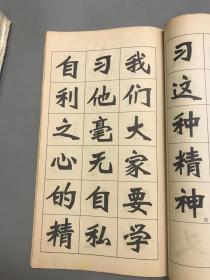 我们大家要学
习他毫无自私
自利之心的精
习这种精神。